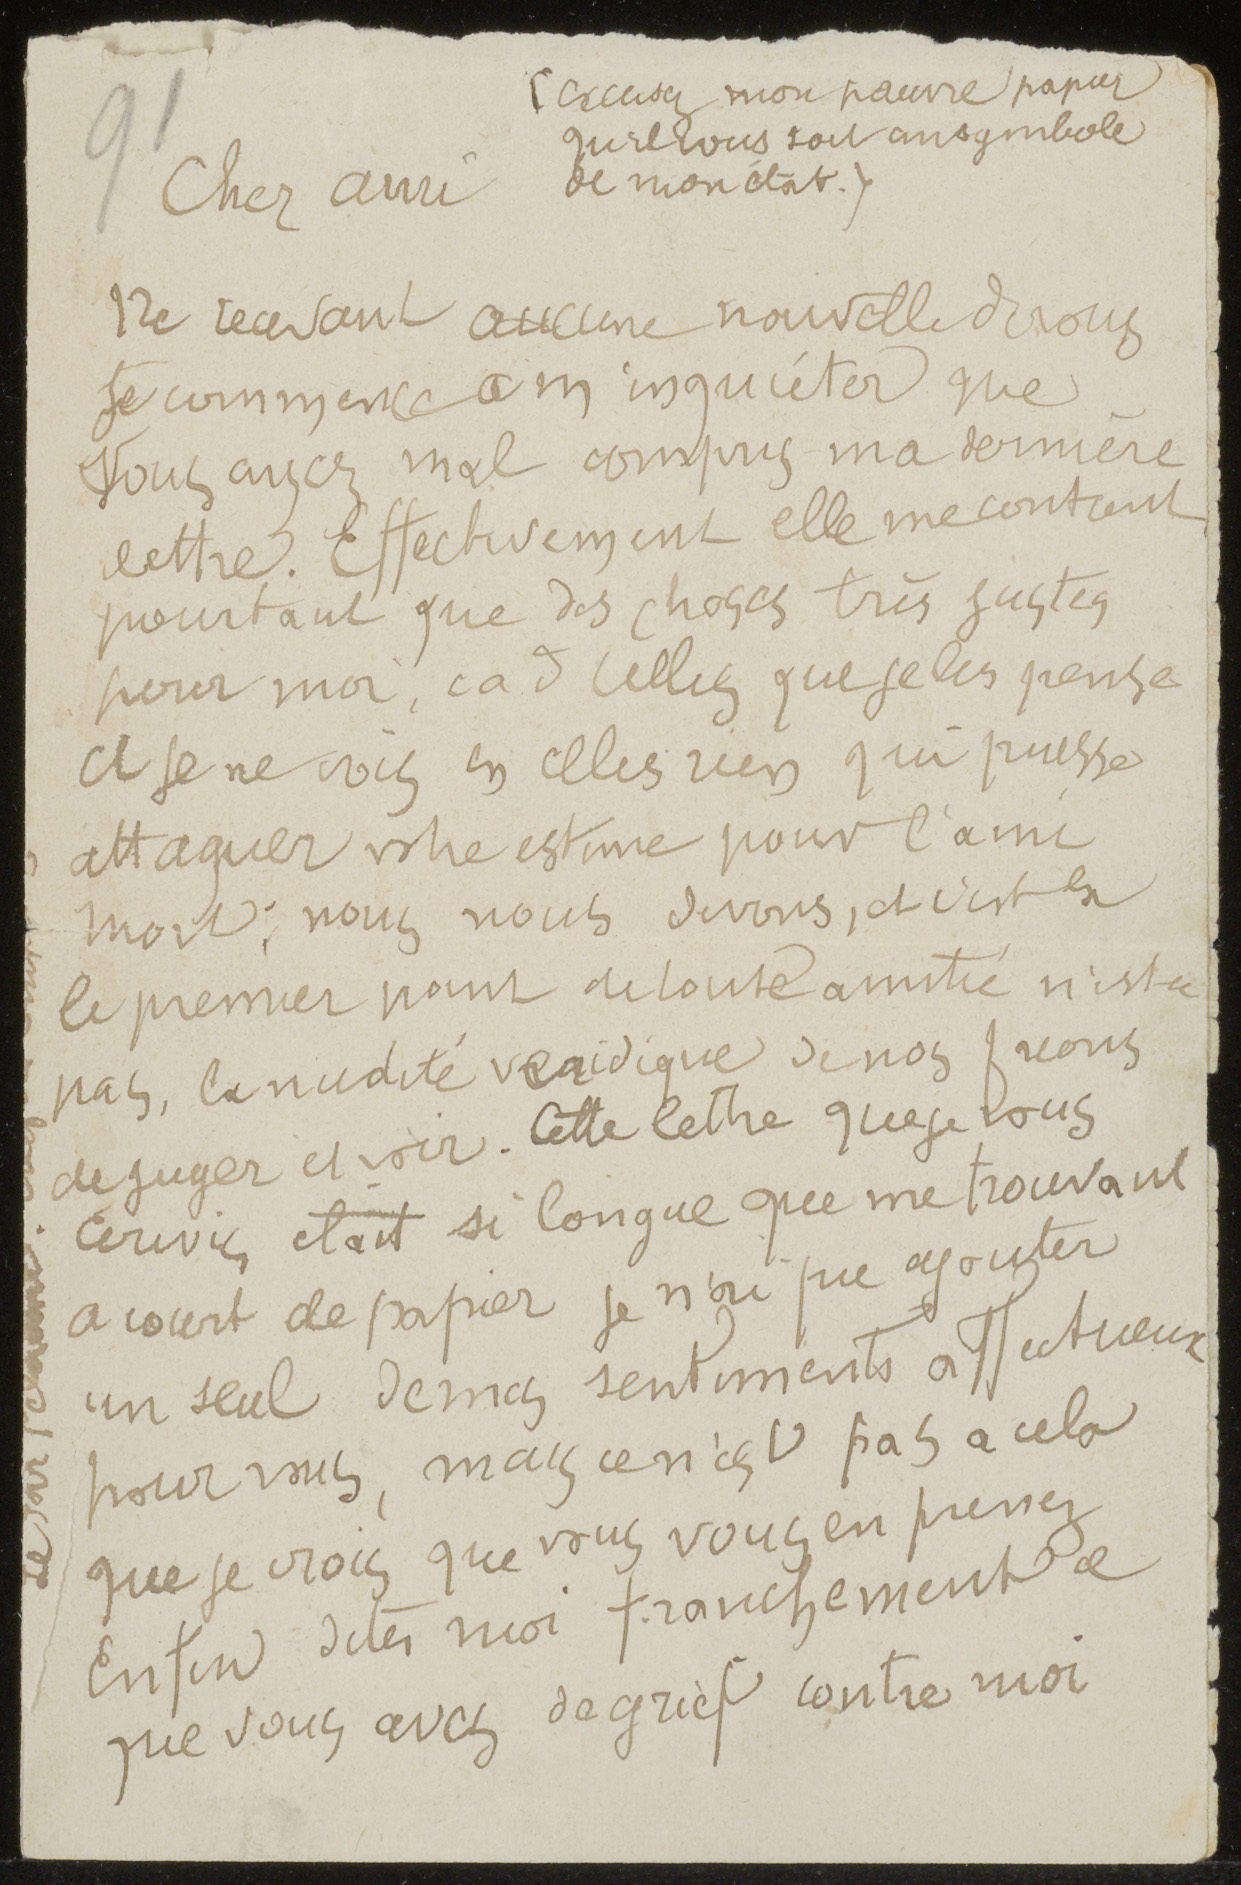 91
(excusez mon pauvre papier
qu'il vous soit un symbole
de mon état.)
Cher ami
Ne recevant aucune nouvelle de vous
je commence a m'inquiéter que
vous ayez mal compris ma dernière
lettre. Effectivement elle ne contient
pourtant que des choses très justes
pour moi, c a d telles que je les pense
et je ne vois en elles rien qui puisse
attaquer votre estime pour l'ami
mort; nous nous devons, et c'est la
le premier point de toute amitié n'est ce
pas, la nudité véridique de nos façons
de juger et voir. Cette lettre que je vous
écrivis était si longue que me trouvant
a court de papier je n'ai pu ajouter
un seul de mes sentiments affectueux
pour vous, mais ce n'est pas a cela
que je crois que vous vous en prenez
Enfin dites moi franchement ce
que vous avez de grief contre moi